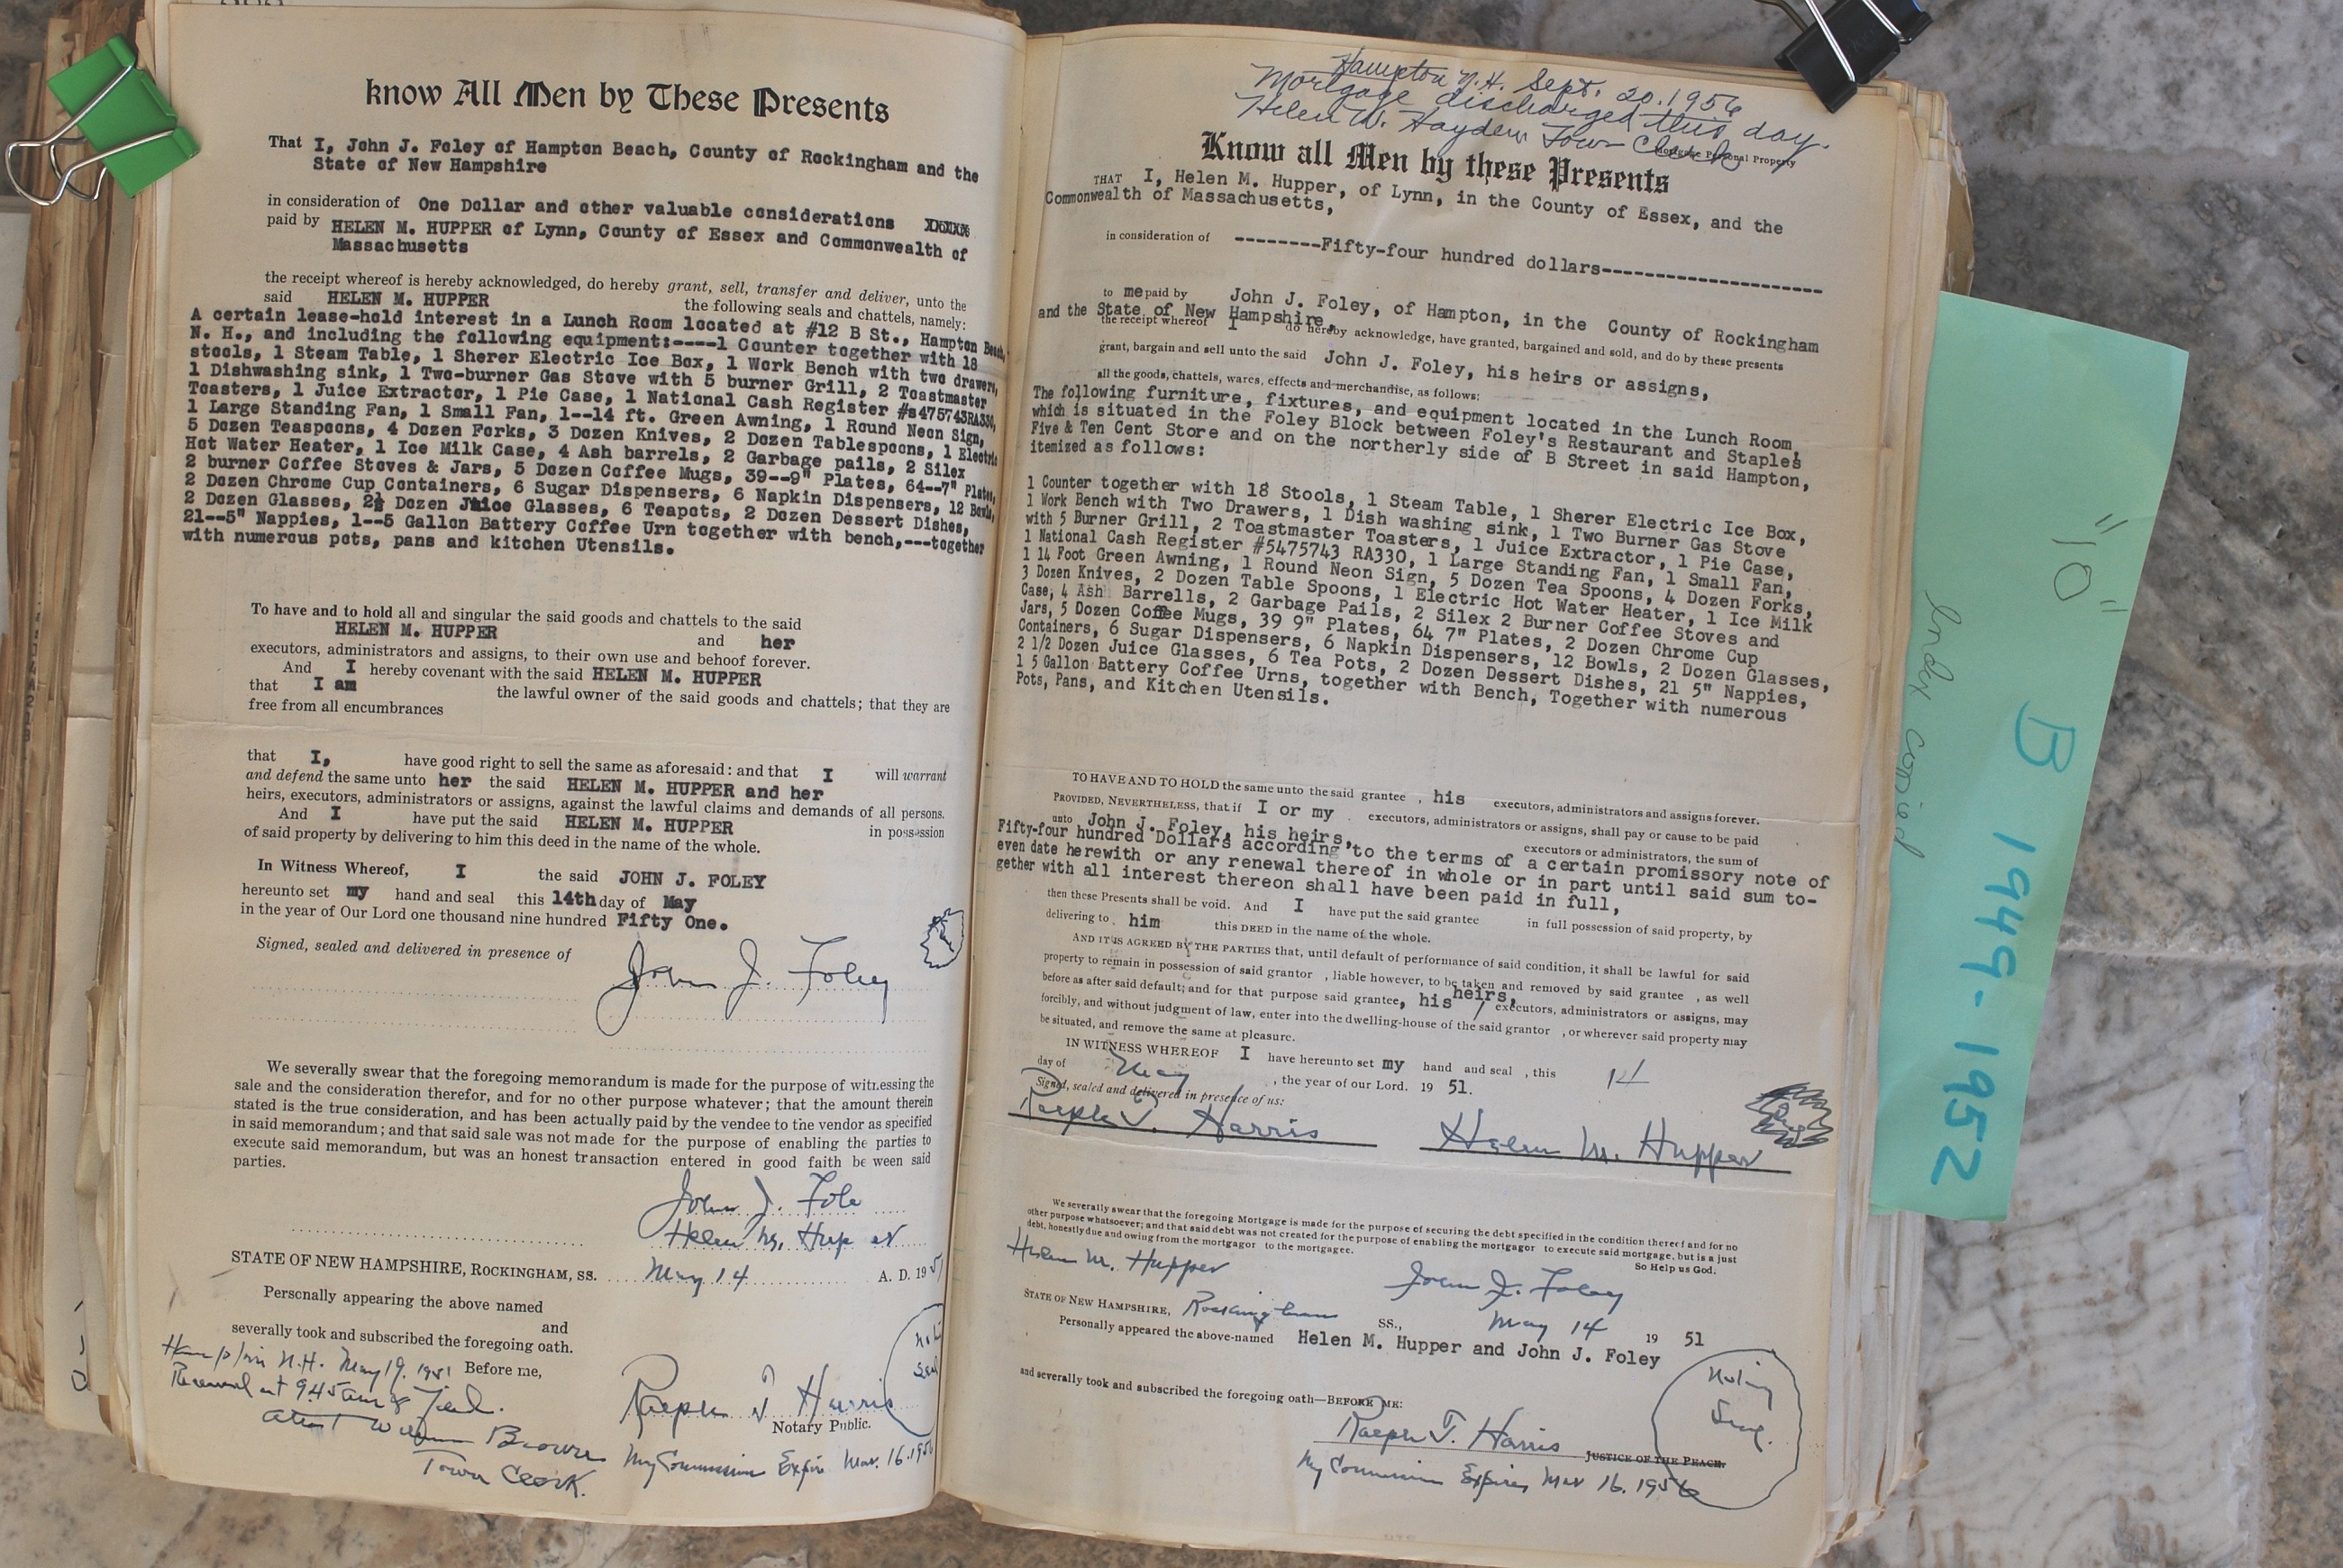 know All Men by These Presents
That I, John J. Foley of Hampton Beach, County of Rockingham and the
State of New Hampshire
in consideration of One Dollar and other valuable considerations XXXXXX
paid by HELEN M. HUPPER of Lynn, County of Essex and Commonwealth of
Massachusetts
the receipt whereof is hereby acknowledged, do hereby grant, sell, transfer and deliver, unto the
said HELEN M. HUPPER the following seals and chattels, namely:
A certain lease-hold interest in a Lunch Room located at #12 B St., Hampton Beach,
N. H., and including the following equipment:----1 Counter together with 18
stools, 1 Steam Table, 1 Sherer Electric Ice Box, 1 Work Bench with two drawers,
1 Dishwashing sink, 1 Two-burner Gas Stove with 5 burner Grill, 2 Toastmaster
Toasters, 1 Juice Extractor, 1 Pie Case, 1 National Cash Register #s475743RA330,
1 Large Standing Fan, 1 Small Fan, 1--14 ft. Green Awning, 1 Round Neon Sign,
5 Dozen Teaspoons, 4 Dozen Forks, 3 Dozen Knives, 2 Dozen Tablespoons, 1 Electric
Hot Water Heater, 1 Ice Milk Case, 4 Ash barrels, 2 Garbage pails, 2 Silex
2 burner Coffee Stoves & Jars, 5 Dozen Coffee Mugs, 39--9" Plates, 64--7" Plates,
2 Dozen Chrome Cup Containers, 6 Sugar Dispensers, 6 Napkin Dispensers, 12 Bowls,
2 Dozen Glasses, 2½ Dozen Juice Glasses, 6 Teapots, 2 Dozen Dessert Dishes,
21--5" Nappies, 1--5 Gallon Battery Coffee Urn together with bench,---together
with numerous pots, pans and kitchen Utensils.
To have and to hold all and singular the said goods and chattels to the said
HELEN M. HUPPER and her
executors, administrators and assigns, to their own use and behoof forever.
And I hereby covenant with the said HELEN M. HUPPER
that I am the lawful owner of the said goods and chattels; that they are
free from all encumbrances
that I, have good right to sell the same as aforesaid: and that I will warrant
and defend the same unto her the said HELEN M. HUPPER and her
heirs, executors, administrators or assigns, against the lawful claims and demands of all persons.
And I have put the said HELEN M. HUPPER in possession
of said property by delivering to him this deed in the name of the whole.
In Witness Whereof, I the said JOHN J. FOLEY
hereunto set my hand and seal this 14th day of May
in the year of Our Lord one thousand nine hundred Fifty One.
Signed, sealed and delivered in presence of
John J. Foley
We severally swear that the foregoing memorandum is made for the purpose of witnessing the
sale and the consideration therefor, and for no other purpose whatever; that the amount therein
stated is the true consideration, and has been actually paid by the vendee to the vendor as specified
in said memorandum; and that said sale was not made for the purpose of enabling the parties to
execute said memorandum, but was an honest transaction entered in good faith be ween said
parties.
John J. Fole
Helen M. Hup er
STATE OF NEW HAMPSHIRE, ROCKINGHAM, SS. May 14 A. D. 195
Personally appearing the above named
and
severally took and subscribed the foregoing oath.
Hampton N.H. May 19, 1951 Before me,
Received at 9 45 am & Filed.
Attest William Brown
Town Clerk.
Ralph T Harris
Notary Public.
My Commission Expires Mar. 16. 1956
Hampton N.H. Sept. 20. 1956
Mortgage discharged this day.
Helen W. Hayden Town Clerk
Mortgage Personal Property
Know all Men by these Presents
THAT I, Helen M. Hupper, of Lynn, in the County of Essex, and the
Commonwealth of Massachusetts,
in consideration of --------Fifty-four hundred dollars--------------------
to me paid by John J. Foley, of Hampton, in the County of Rockingham
and the State of New Hampshire,
the receipt whereof I do hereby acknowledge, have granted, bargained and sold, and do by these presents
grant, bargain and sell unto the said John J. Foley, his heirs or assigns,
all the goods, chattels, wares, effects and merchandise, as follows:
The following furniture, fixtures, and equipment located in the Lunch Room,
which is situated in the Foley Block between Foley's Restaurant and Staples
Five & Ten Cent Store and on the northerly side of B Street in said Hampton,
itemized as follows:
1 Counter together with 18 Stools, 1 Steam Table, 1 Sherer Electric Ice Box,
1 Work Bench with Two Drawers, 1 Dish washing sink, 1 Two Burner Gas Stove
with 5 Burner Grill, 2 Toastmaster Toasters, 1 Juice Extractor, 1 Pie Case,
1 National Cash Register #5475743 RA330, 1 Large Standing Fan, 1 Small Fan,
1 14 Foot Green Awning, 1 Round Neon Sign, 5 Dozen Tea Spoons, 4 Dozen Forks,
3 Dozen Knives, 2 Dozen Table Spoons, 1 Electric Hot Water Heater, 1 Ice Milk
Case, 4 Ash Barrells, 2 Garbage Pails, 2 Silex 2 Burner Coffee Stoves and
Jars, 5 Dozen Coffee Mugs, 39 9" Plates, 64 7" Plates, 2 Dozen Chrome Cup
Containers, 6 Sugar Dispensers, 6 Napkin Dispensers, 12 Bowls, 2 Dozen Glasses,
2 1/2 Dozen Juice Glasses, 6 Tea Pots, 2 Dozen Dessert Dishes, 21 5" Nappies,
1 5 Gallon Battery Coffee Urns, together with Bench, Together with numerous
Pots, Pans, and Kitchen Utensils.
TO HAVE AND TO HOLD the same unto the said grantee , his executors, administrators and assigns forever.
PROVIDED, NEVERTHELESS, that if I or my executors, administrators or assigns, shall pay or cause to be paid
unto John J. Foley, his heirs, executors or administrators, the sum of
Fifty-four hundred Dollars according to the terms of a certain promissory note of
even date herewith or any renewal thereof in whole or in part until said sum to-
gether with all interest thereon shall have been paid in full,
then these Presents shall be void. And I have put the said grantee in full possession of said property, by
delivering to him this DEED in the name of the whole.
AND IT IS AGREED BY THE PARTIES that, until default of performance of said condition, it shall be lawful for said
property to remain in possession of said grantor , liable however, to be taken and removed by said grantee , as well
before as after said default; and for that purpose said grantee, his heirs, / executors, administrators or assigns, may
forcibly, and without judgment of law, enter into the dwelling-house of the said grantor , or wherever said property may
be situated, and remove the same at pleasure.
IN WITNESS WHEREOF I have hereunto set my hand and seal , this 14
day of May , the year of our Lord. 19 51.
Signed, sealed and delivered in presence of us:
Ralph T. Harris Helen M. Hupper
We severally swear that the foregoing Mortgage is made for the purpose of securing the debt specified in the condition thereof and for no
other purpose whatsoever; and that said debt was not created for the purpose of enabling the mortgagor to execute said mortgage, but is a just
debt, honestly due and owing from the mortgagor to the mortgagee.
So Help us God.
Helen M. Hupper John J. Foley
STATE OF NEW HAMPSHIRE, Rockingham SS., May 14 19 51
Personally appeared the above-named Helen M. Hupper and John J. Foley
and severally took and subscribed the foregoing oath—BEFORE ME:
Ralph T. Harris JUSTICE OF THE PEACE.
My Commission Expires Mar 16. 1956
Notary
Seal.
"10"
B 1949-1952
Index copied